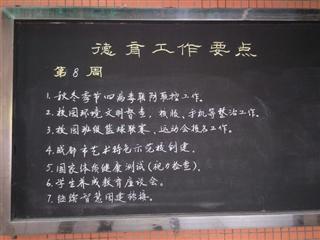 德育工作要点
第 8 周
1. 秋冬季节四病季联防联控工作。
2. 校园环境文明督查，校服、手机等整治工作。
3. 校园班级篮球联赛、运动会报名工作。
4. 成都市艺术特色示范校创建。
5. 国家体质健康测试(视力检查)。
6. 学生养成教育座谈会。
7. 继续智慧团建转接。